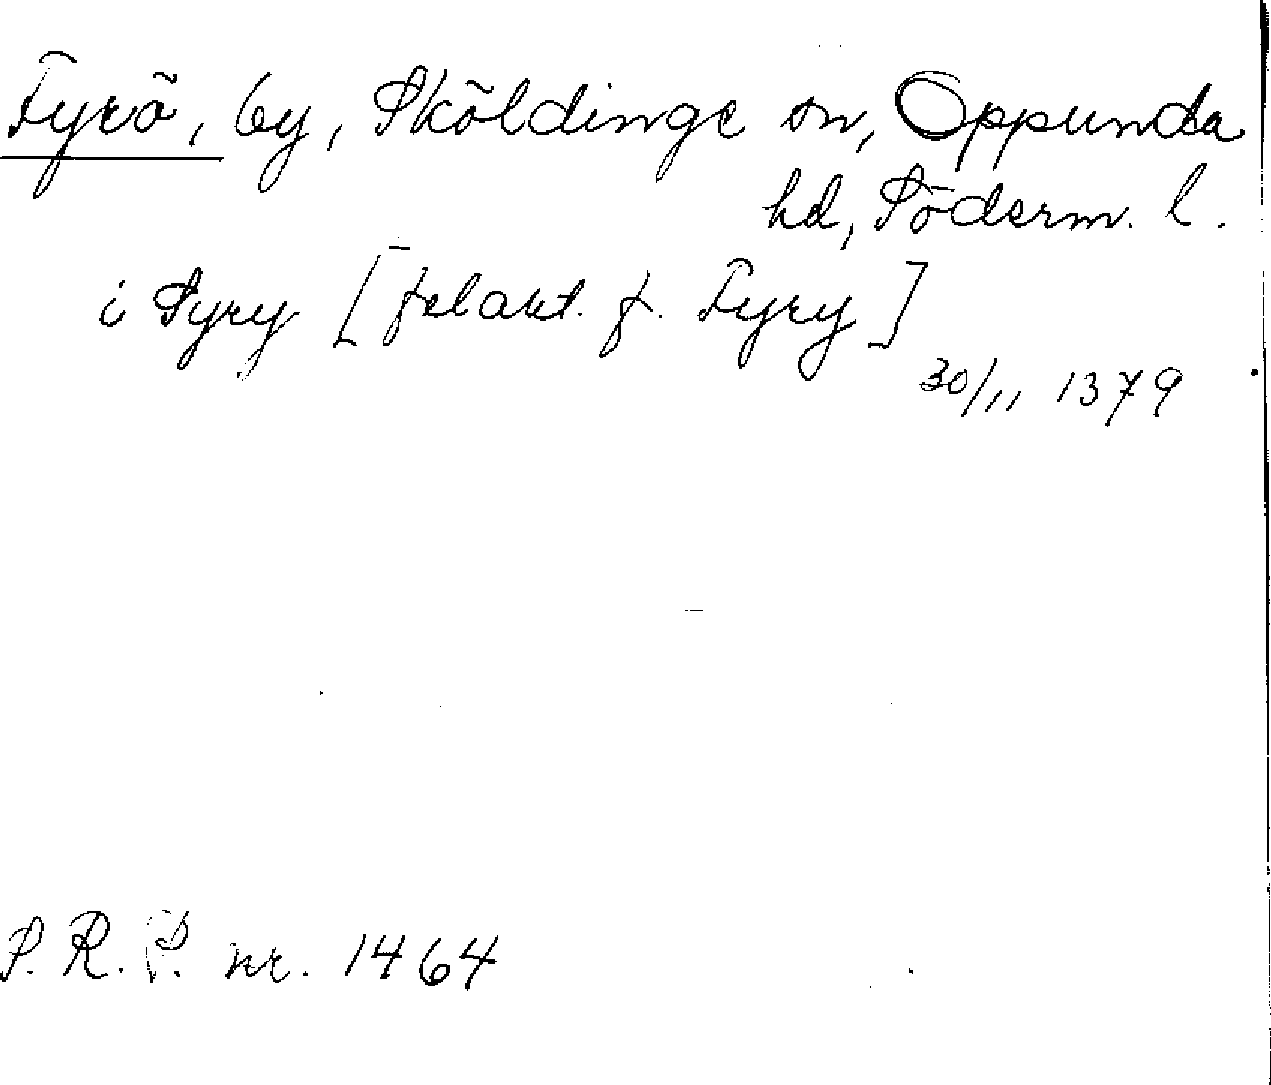 Fyrö, by, Sköldinge sn, Oppunda
hd, Söderm. l.
i Syry [felakt. f. Fyry]
30/11 1379
S. R. P. nr. 1464